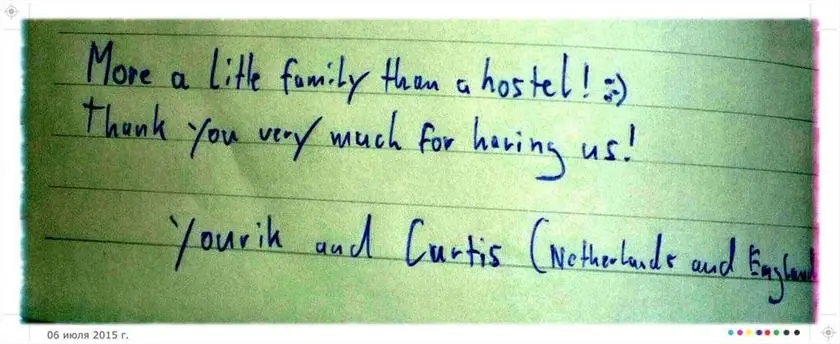 More a little family than a hostel! :-)
Thank you very much for having us!
Yourik and Curtis (Netherlands and England
06 июля 2015 г.